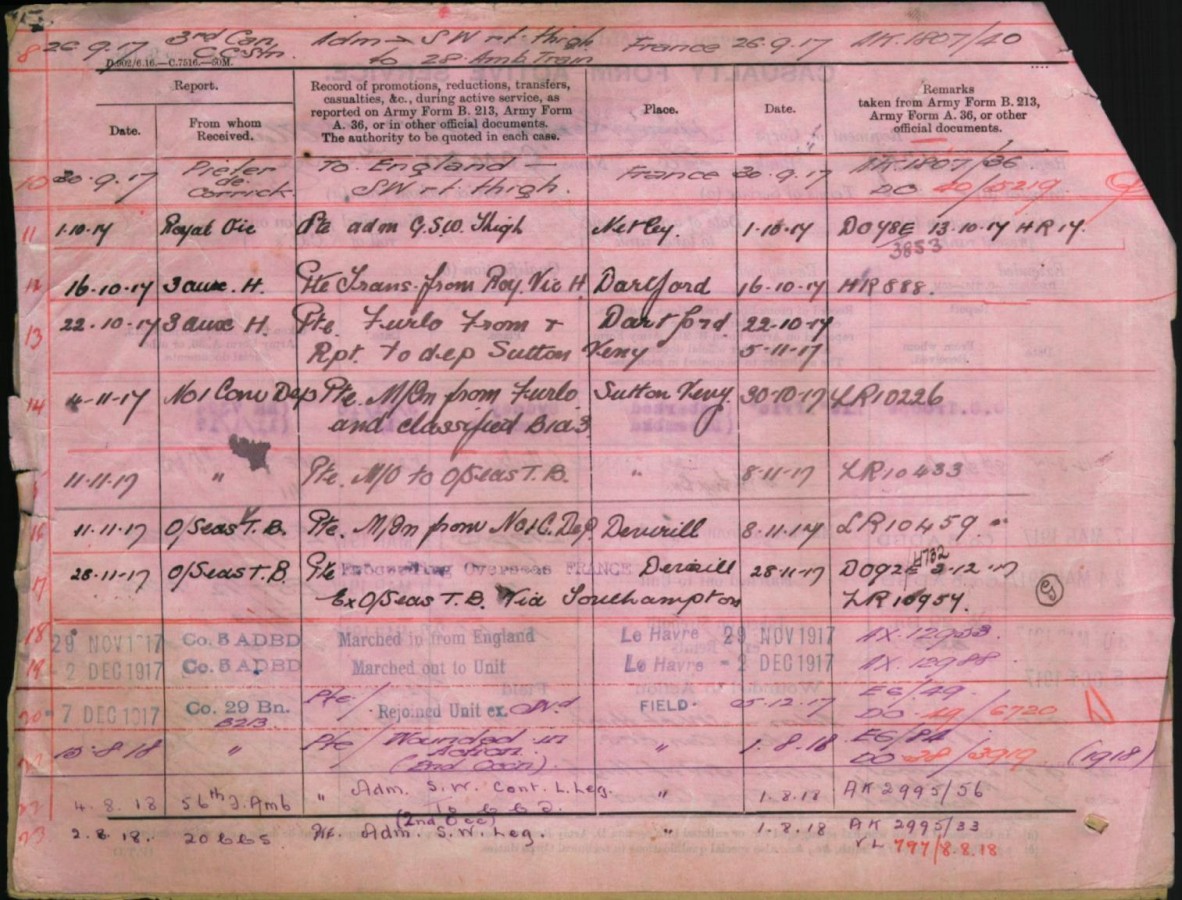 8 26.9.17 3rd Can. Adm - SW rt thigh France 26.9.17 AK.1807/40
C.C.Stn. to 28 Amb Train
D.902/6.16.—C.7516.—50M.
Report.
Date.
From whom Received.
Record of promotions, reductions, transfers, casualties, &c., during active service, as reported on Army Form B. 213, Army Form A. 36, or in other official documents. The authority to be quoted in each case.
Place.
Date.
Remarks taken from Army Form B. 213, Army Form A. 36, or other official documents.
10 30.9.17 Pieter To England – France 30.9.17 AK.1807/36
de SW rt thigh. DO 40/5219
11 1.10.17 Royal Vic Pte adm G.S.W. Thigh Netley. 1.10.17 DO48E 13.10.17 HR 17.
3853
16.10.17 3 aux. H. Pte Trans. from Roy. Vic H Dartford 16.10.17 HR 888.
13 22.10.17 3 aux H. Pte. Furlo From & Dartford 22.10.17
Rpt. to dep Sutton Veny 5.11.17
14 4.11.17 No 1 Conv Dep Pte. M/In from Furlo Sutton Veny. 30.10.17 LR10226
and classified B1a3
11.11.17 " Pte. M/O to O/Seas T.B. " 8.11.17 LR10433
16 11.11.17 O/Seas T.B. Pte. M/In from No 1 C. Dep. Deverill 8.11.17 LR10459
17 28.11.17 O/Seas T.B. Pte Proceeding Overseas FRANCE Deverill 28.11.17 DO92E H782 3.12.17
Ex O/Seas T.B. Via Southampton LR10957.
18 29 NOV 1917 Co. 5 ADBD Marched in from England Le Havre 29 NOV 1917 AX.12953.
19 2 DEC 1917 Co. 5 ADBD Marched out to Unit Le Havre - 2 DEC 1917 AX.12988
20 7 DEC 1917 Co. 29 Bn. Pte/ Rejoined Unit ex. FIELD. 5.12.17 EG/49.
B213 DO 49/6720
8.18 " Pte/ Wounded in " 1.8.18 EG/84
Action. DO 38/3919 (1918)
(2nd Occn).
4.8.18 56th F. Amb " Adm. S.W. Cont. L. Leg. " 1.8.18 AK 2995/56
To C.C.S.
(2nd Occ)
23 2.8.18. 20 CCS Pte. Adm. S.W. Leg. " 1.8.18 AK 2995/33
VL 797/8.8.18